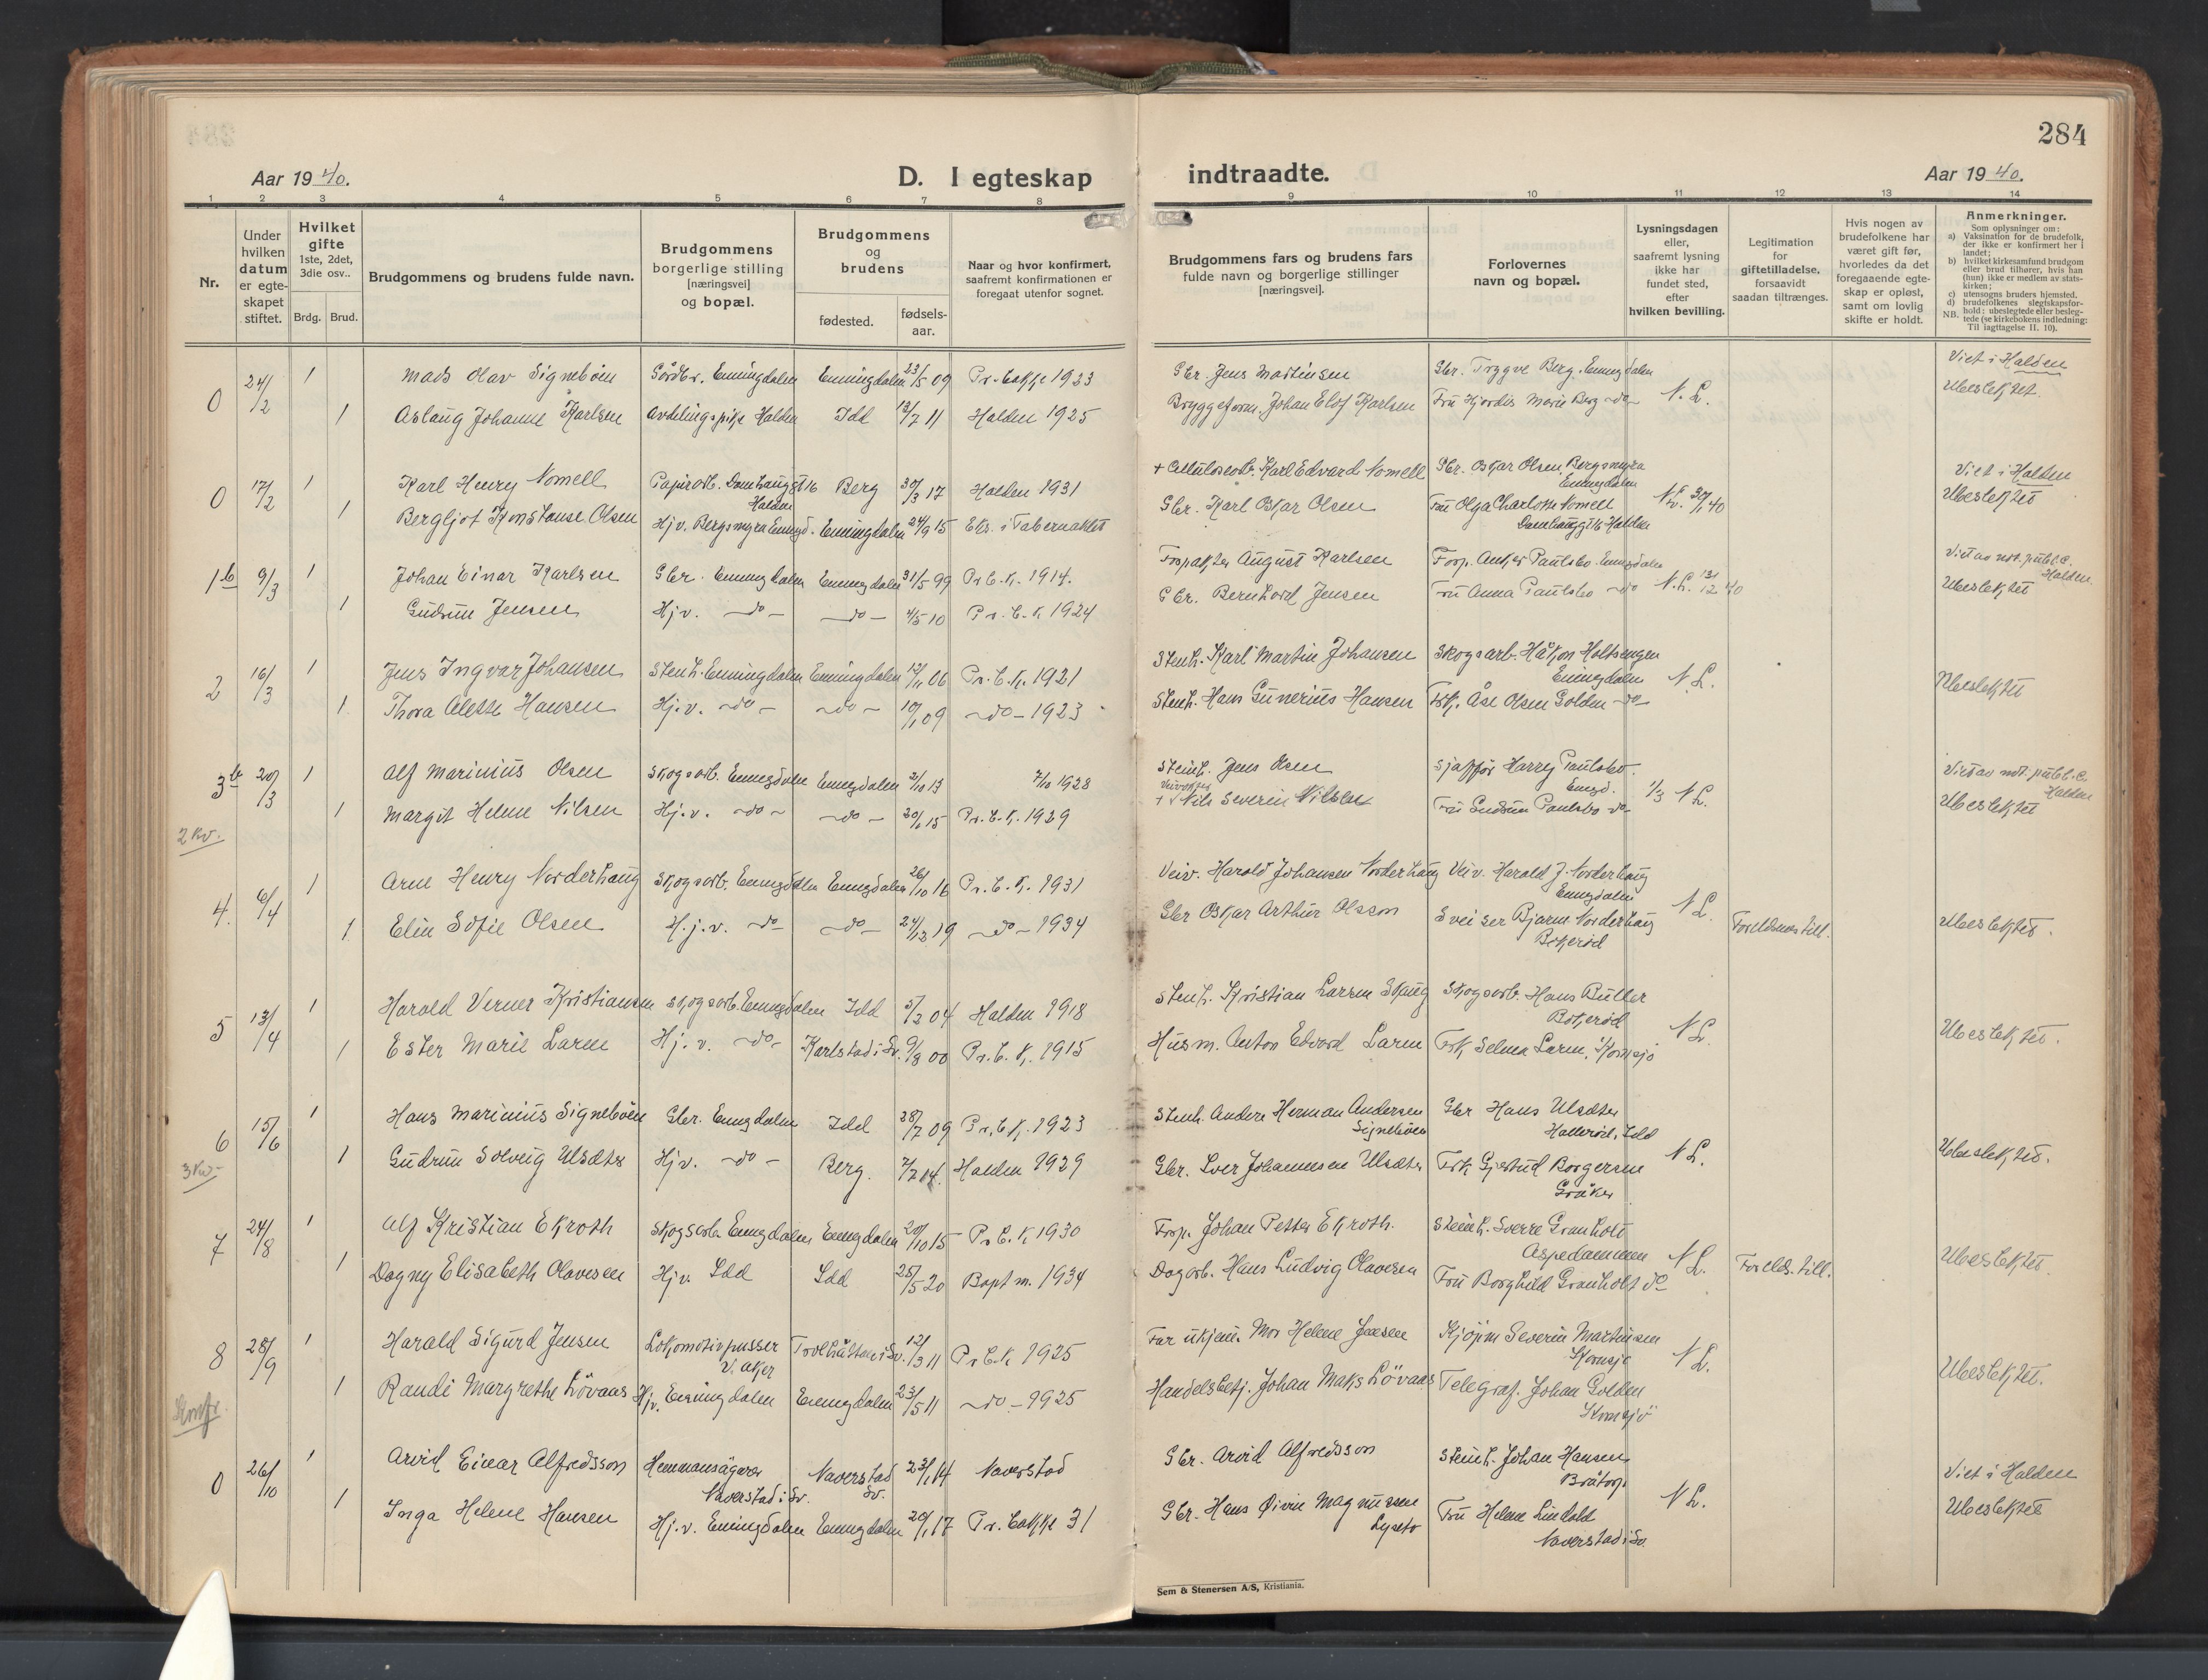 284
Aar 1940.
D. I egteskap
indtraadte.
Aar 1940.
1 2 3 4 5 6 7 8 9 10 11 12 13 14
Nr.
Under hvilken datum er egteskapet stiftet.
Hvilket gifte 1ste, 2det, 3die osv..
Brdg. Brud.
Brudgommens og brudens fulde navn.
Brudgommens borgerlige stilling [næringsvei] og bopæl.
Brudgommens og brudens
fødested.
fødsels-aar.
Naar og hvor konfirmert, saafremt konfirmationen er foregaat utenfor sognet.
Brudgommens fars og brudens fars fulde navn og borgerlige stillinger [næringsvei].
Forlovernes navn og bopæl.
Lysningsdagen eller, saafremt lysning ikke har fundet sted, efter hvilken bevilling.
Legitimation for giftetilladelse, forsaavidt saadan tiltrænges.
Hvis nogen av brudefolkene har været gift før, hvorledes da det foregaaende egteskap er opløst, samt om lovlig skifte er holdt.
Anmerkninger.
Som oplysninger om:
a) Vaksination for de brudefolk, der ikke er konfirmert her i landet;
b) hvilket kirkesamfund brudgom eller brud tilhører, hvis han (hun) ikke er medlem av statskirken;
c) utensogns bruders hjemsted.
d) brudefolkenes slegtskapsforhold: ubeslegtede eller beslegtede (se kirkebokens indledning: Til iagttagelse II. 10).
NB.
0 24/2 1 Mads Olav Signebøen Gårdbr. Enningdalen Enningdalen 23/5 09 Pr. Bakke 1923 Gbr. Jens Martinsen Gbr. Trygve Berg. Enningdalen N. L. Viet i Halden
1 Aslaug Johanne Karlsen Avdelingspike Halden Idd 13/7 11 Halden 1925 Bryggeform. Johan Elof Karlsen Fru Hjørdis Marie Berg -do- Ubeslektet.
0 17/2 1 Karl Henry Nomell Papirarb. Damhauggt 16 Halden Berg 30/3 17 Halden 1931 + Cellulosearb. Karl Edvard Nomell Gbr. Oskar Olsen, Bergsmyra Enningdalen N.L. 30/1 40 Viet i Halden
1 Bergljot Konstanse Olsen Hj.v. Bergsmyra Enngd. Enningdalen 24/9 15 Eks. i Tabernaklet Gbr. Karl Oskar Olsen Fru Olga Charlotte Nomell Damhauggt 16 Halden Ubeslektet
1b 9/3 1 Johan Einar Karlsen Gbr. Enningdalen Enningdalen 31/5 99 Pr. B.K. 1914. Forpakter August Karlsen Forp. Anker Paulsbo Enningdalen N.L. Viet av not. publ. c. Halden
1 Gudrun Jensen Hj.v. -do- -do- 4/5 10 Pr. B.K. 1924 Gbr. Bernhard Jensen Fru Anna Paulsbo -do Ubeslektet
2 16/3 1 Jens Ingvar Johansen Stenh. Enningdalen Enningdalen 12/11 06 Pr. B.K. 1921 Stenh. Karl Martin Johansen Skogsarb. Håkon Holtsengen Enningdalen N.L. Ubeslektet
1 Thora Alette Hansen Hj.v. -do- -do- 10/1 09 -do- 1923 Stenh. Hans Gunerius Hansen Frk. Åse Olsen Golden -do-
3b 20/3 1 Alf Marinius Olsen Skogsarb. Enningdalen Enningdalen 2/10 13 7/10 1928 Steinh. Jens Olsen Sjåffør Harry Paulsbo. Enngd. 1/3 N.L. Viet av not. publ. c. Halden
1 Margit Helene Nilsen Hj.v. -do- -do- 20/6 15 Pr. B.K. 1929 + Veivokter Nils Severin Nilsen Fru Gudrun Paulsbo do- Ubeslektet
2 kv.
4. 6/4 1 Arne Henry Norderhaug Skogsarb. Enningdalen Enningdalen 26/10 16 Pr. B.K. 1931 Veiv. Harald Johansen Norderhaug Veiv. Harald J. Norderhaug Enningdalen N.L.
1 Elin Sofie Olsen H.j.v. -do -do- 24/12 19 -do- 1934 Gbr Oskar Arthur Olsson Sveiser Bjarne Norderhaug Bokerød Foreldrenes till. Ubeslektet.
5 13/4 1 Harald Verner Kristiansen Skogsarb. Enningdalen Idd 5/2 04 Halden 1918 Stenh. Kristian Larsen Skaug Skogsarb. Hans Buller Bokerød N.L. Ubeslektet.
1 Ester Marie Larsen Hj.v. -do- Karlstad i Sv. 9/8 00 Pr. B.K. 1915 Husm. Anton Edvard Larsen Frk Selma Larsen, Kornsjø
6 15/6 1 Hans Marinius Signebøen Gbr. Enningdalen Idd 28/7 09 Pr. B.K. 1923 Stenh. Anders Herman Andersen Signebøen Gbr Hans Ulsæter Hallerød, Idd N.L. Ubeslektet.
1 Gudrun Solveig Ulsæter Hj.v. -do- Berg. 7/2 14. Halden 1929 Gbr. Iver Johannesen Ulsæter Frk Gjertrud Borgersen Gråker
3 kv.
7 24/8 1 Alf Kristian Ekroth Skogsarb. Enningdalen Enningdalen 20/10 15 Pr B.K. 1930 Forp. Johan Petter Ekroth. Steinh. Sverre Granholt Aspedammen N.L. Forelds. till. Ubeslektet.
1 Dagny Elisabeth Olavesen Hj.v. Idd Idd 25/5 20 Bapt m. 1934 Dagarb. Hans Ludvig Olavesen Fru Borghild Granholt do
8 28/9 1 Harald Sigurd Jensen Lokomotivpusser V. Aker Trollhåtten i Sv. 12/3 11 Pr B.K. 1925 Far ukjent. Mor Helene Jensen Kjøpm Severin Martinsen Kornsjø N.L. Ubeslektet.
1 Randi Margrethe Lövaas Hj.v. Enningdalen Enningdalen 23/5 11 -do- 1925 Handelsbetj. Johan Maks Lövaas Telegraf. Johan Golden Kornsjö
0 26/10 1 Arvid Einar Alfredsson Hemmansägare Naverstad i Sv. Naverstad Sv. 23/1 14 Naverstad Gbr. Arvid Alfredsson Steinh. Johan Hansen Bråtorp N.L. Viet i Halden
1 Inga Helene Hansen Hj.v. Enningdalen Enningdalen 20/1 17 Pr. Bakke 31 Gbr. Hans Øivin Magnussen Lyseto Fru Helene Lindald Naverstad i Sv. Ubeslektet
Sem & Stenersen A/S, Kristiania.